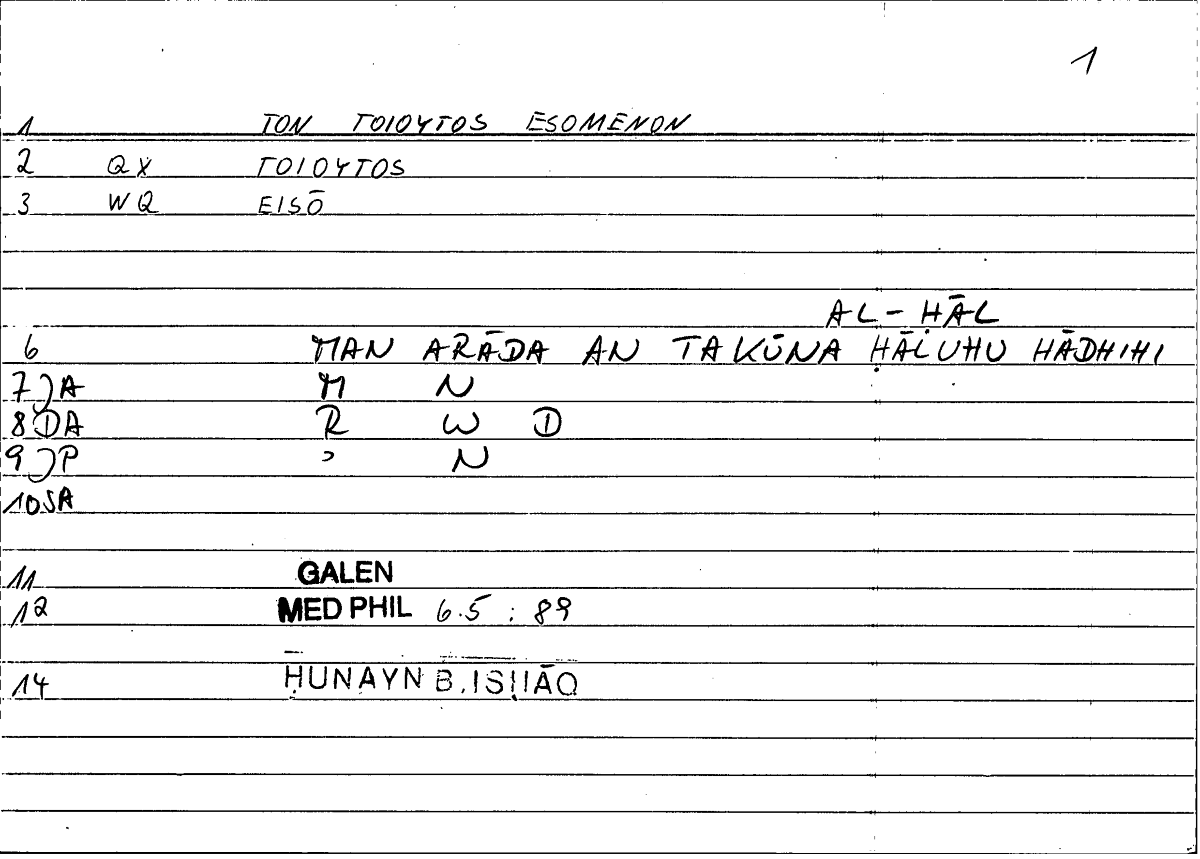 1
1 TON TOIOYTOS ESOMENON
2 QX TOIOYTOS
3 WQ EISŌ
AL-ḤĀL
6 MAN ARĀDA AN TAKŪNA ḤĀLUHU HĀDHIHI
7 JA M N
8 DA R W D
9 JP ʾ N
10 SA
11 GALEN
12 MED PHIL 6.5 : 89
14 ḤUNAYN B. ISḤĀQ